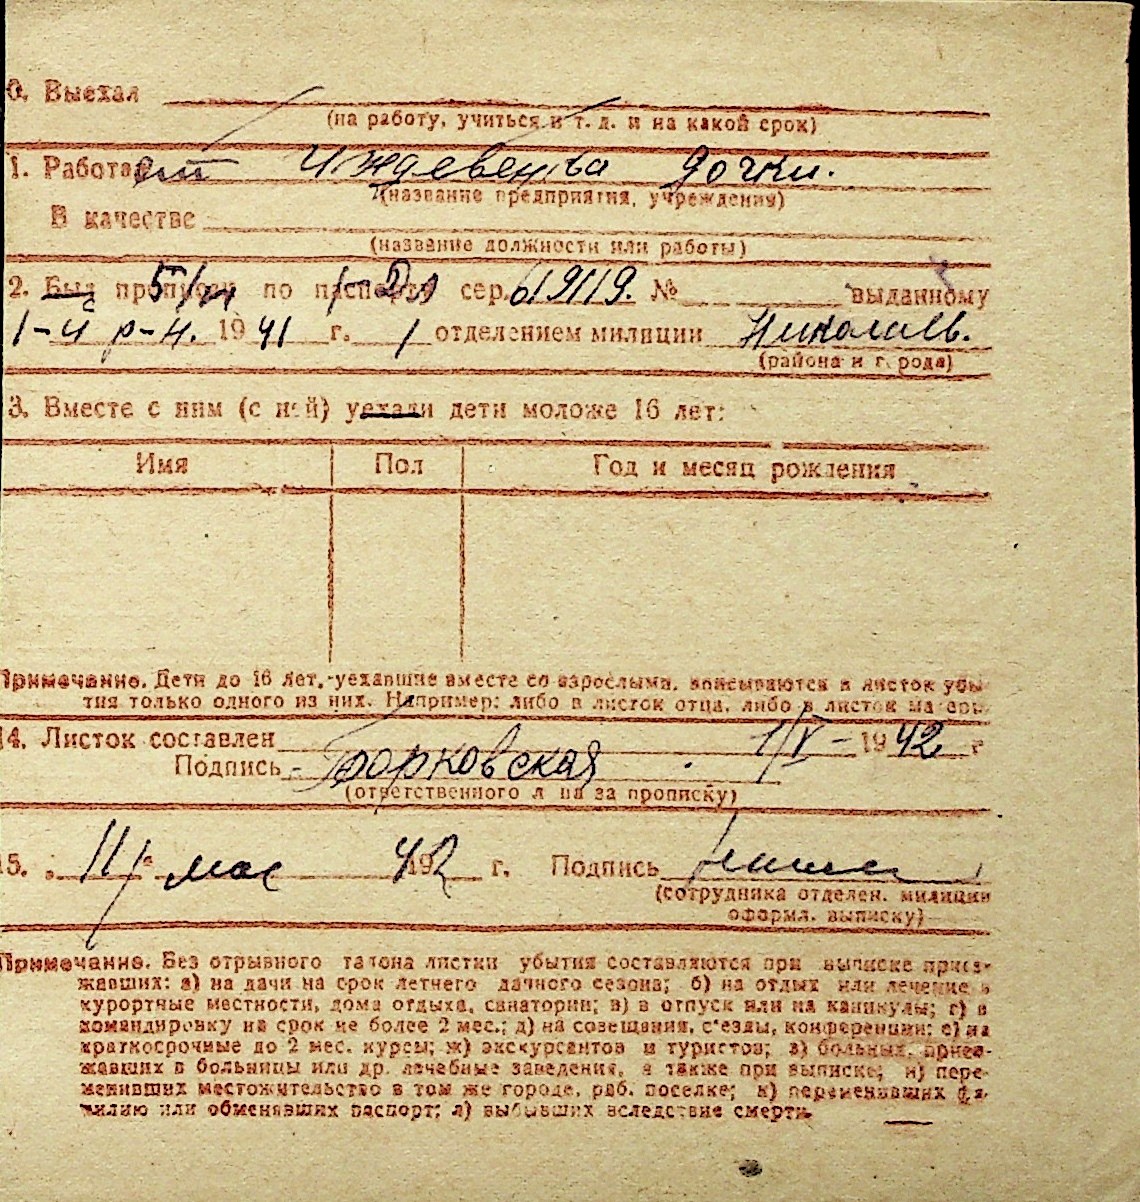 0. Выехал
(на работу, учиться и т. д. и на какой срок)
1. Работает Иждевенка дочки.
(название предприятия, учреждения)
В качестве
(название должности или работы)
2. Был по сер. 61919. № выданному
1-ч р-н. 1941 г. 1 отделением милиции Николаев.
(района и города)
3. Вместе с ним (с ней) уехали дети моложе 16 лет:
Имя Пол Год и месяц рождения
Примечание. Дети до 16 лет, уехавшие вместе со взрослыми, вписываются в листок убы-
тия только одного из них. Например: либо в листок отца, либо в листок матери.
14. Листок составлен 1/V - 1942 г
Подпись Борковская
(ответственного лица за прописку)
15. 11/ мае 1942 г. Подпись
(сотрудника отделен. милиции
оформл. выписку)
Примечание. Без отрывного талона листки убытия составляются при выписке приез-
жавших: а) на дачи на срок летнего дачного сезона; б) на отдых или лечение в
курортные местности, дома отдыха, санатории; в) в отпуск или на каникулы; г) в
командировку на срок не более 2 мес.; д) на совещания, с'езды, конференции; е) на
краткосрочные до 2 мес. курсы; ж) экскурсантов и туристов; з) больных, приез-
жавших в больницы или др. лечебные заведения, а также при выписке; и) пере-
менивших местожительство в том же городе, раб. поселке; к) переменивших фа-
милию или обменявших паспорт; л) выбывших вследствие смерти.